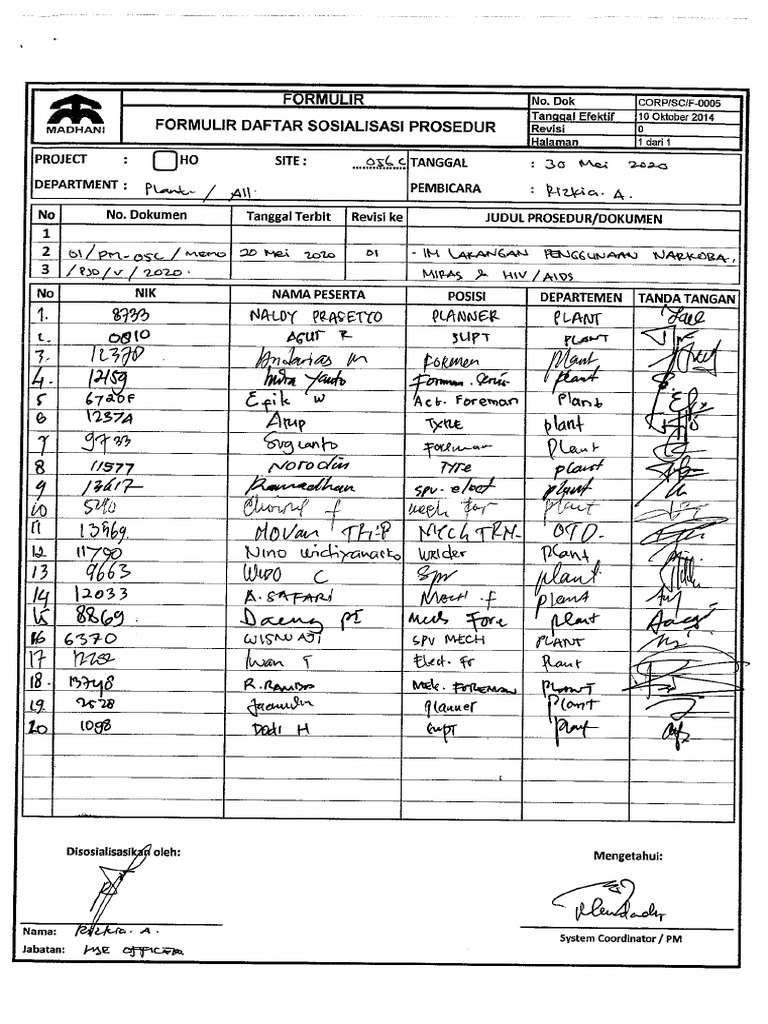 MADHANI
FORMULIR
FORMULIR DAFTAR SOSIALISASI PROSEDUR
No. Dok CORP/SC/F-0005
Tanggal Efektif 10 Oktober 2014
Revisi 0
Halaman 1 dari 1
PROJECT : HO SITE :
TANGGAL : 30 Mei 2020
DEPARTMENT : Plant / All.
PEMBICARA : Rizkia. A.
No No. Dokumen Tanggal Terbit Revisi ke JUDUL PROSEDUR/DOKUMEN
1
2 01/PM-OSC/MEMO 20 Mei 2020 01 - IM LARANGAN PENGGUNAAN NARKOBA,
3 /PJO/V/2020. MIRAS & HIV/AIDS
No NIK NAMA PESERTA POSISI DEPARTEMEN TANDA TANGAN
1. 8733 NALDY PRASETYO PLANNER PLANT
2. AGUT R SUPT PLANT
3. 12370 Andarias M Formen Plant
4. 12159 Indra Yanto Plant
5 Epik W Act. Foreman Plant
6 Arip TYRE plant
7 9733 Sugianto Foreman Plant
8 11577 TYRE plant
9 13617 Ramadhan spv. elect plant
10 plant
11 OTD.
12 11790 Nino Widiyanarko Welder Plant
13 9663 WIDO C Spv plant
14 12033 A. SAFARI Mech. f plant
15 8869 Daeng Mech Fore plant
16 6370 WISNU AJI SPV MECH PLANT
17 Iwan T Elect. Fr Plant
18. 13748 R. RAMBO Mek. FOREMAN PLANT
19. 2528 planner plant
20 1098 Dodi H supt plant
Disosialisasikan oleh:
Mengetahui:
Nama: Rizkia. A.
Jabatan: HSE OFFICER
System Coordinator / PM